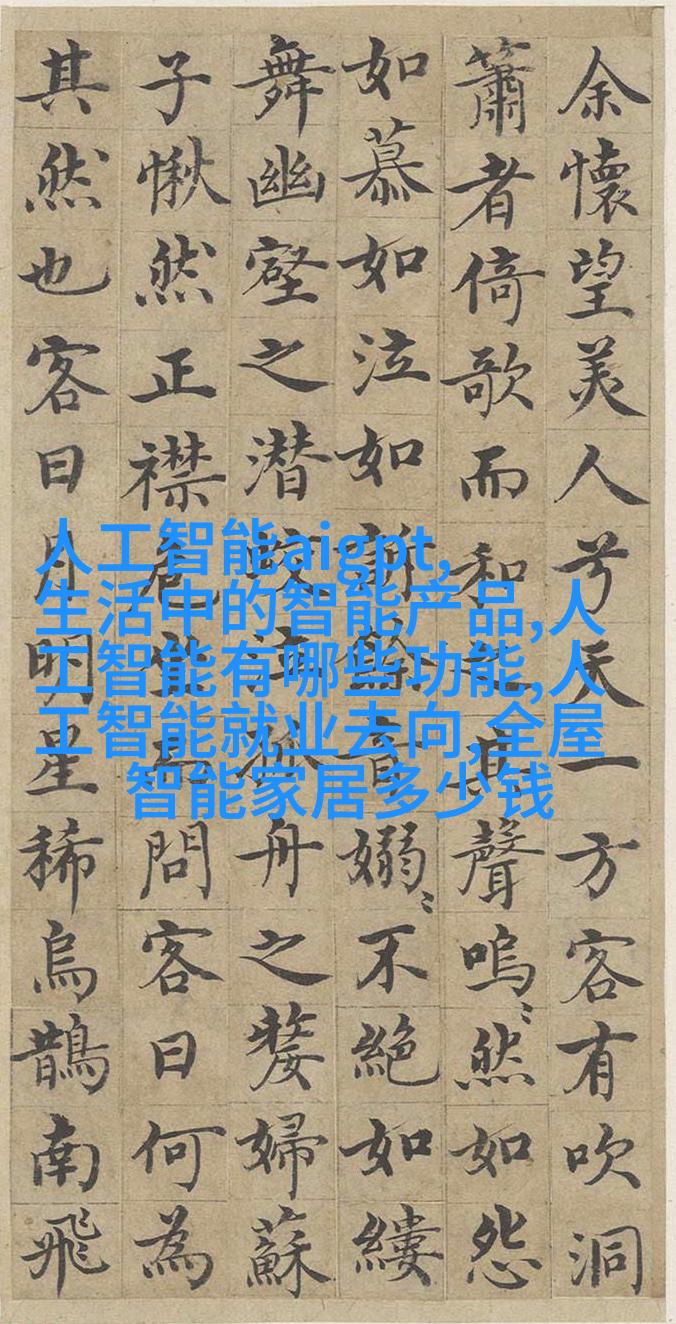 余懷望美人兮天一方客有吹洞
簫者倚歌而和之其聲嗚〻然如怨
如慕如泣如訴餘音嫋〻不絕如縷
舞幽壑之潛蛟泣孤舟之嫠婦蘇
子愀然正襟危坐而問客曰何為
其然也客曰月明星稀烏鵲南飛
人工智能aigpt,
生活中的智能产品,人
工智能有哪些功能,人
工智能就业去向,全屋
智能家居多少钱